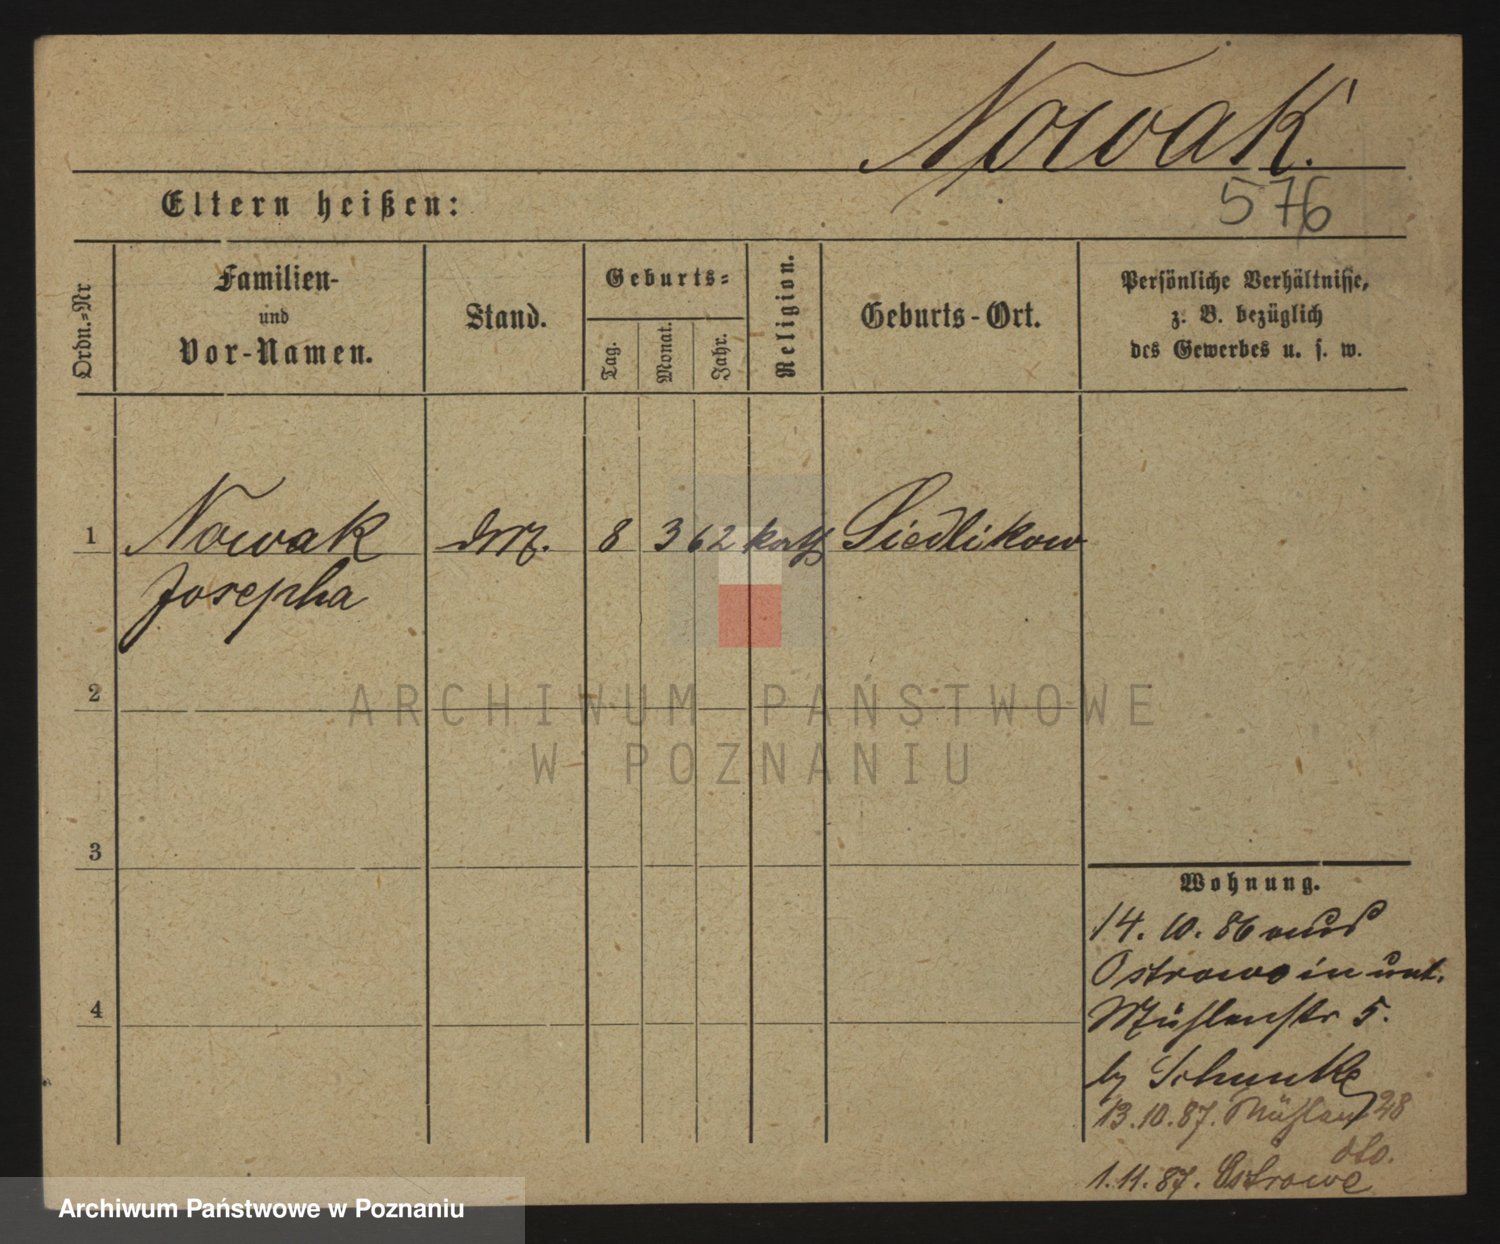 Nowak.
576
Eltern heißen:
Ordn.-Nr
Familien-
und
Vor-Namen.
Stand.
Geburts-
Tag.
Monat.
Jahr.
Religion.
Geburts-Ort.
Persönliche Verhältnisse,
z. B. bezüglich
des Gewerbes u. s. w.
1 Nowak 8 3 62 kath Siedlikow
Josepha
2
ARCHIWUM PAŃSTWOWE
W POZNANIU
3
Wohnung.
14. 10. 86 aus
Ostrowo in unt.
4
Mühlenstr 5.
by Schunke
13. 10. 87. Mühlen 28
dto.
1. 11. 87. Ostrowo
Archiwum Państwowe w Poznaniu